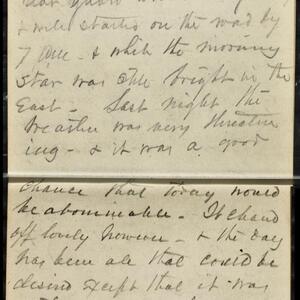 & were started on the road by
7 am - & while the morning
star was still bright in the
East - Last night the
weather was very threaten
ing - & it was a good
chance that today would
be abominable - It cleared
off lovely however - & the day
has been all that could be
desired except that it was